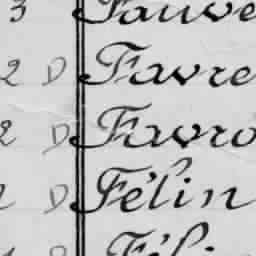 3 Fauve
2 D Favre
2 D Favro
D Félin